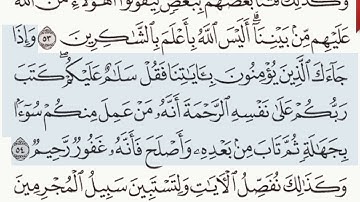 وَكَذَٰلِكَ فَتَنَّا بَعْضَهُم بِبَعْضٍ لِّيَقُولُوٓا۟ أَهَـٰٓؤُلَآءِ مَنَّ ٱللَّهُ
عَلَيْهِم مِّنۢ بَيْنِنَآ ۗ أَلَيْسَ ٱللَّهُ بِأَعْلَمَ بِٱلشَّـٰكِرِينَ ٥٣ وَإِذَا
جَآءَكَ ٱلَّذِينَ يُؤْمِنُونَ بِـَٔايَـٰتِنَا فَقُلْ سَلَـٰمٌ عَلَيْكُمْ ۖ كَتَبَ
رَبُّكُمْ عَلَىٰ نَفْسِهِ ٱلرَّحْمَةَ ۖ أَنَّهُۥ مَنْ عَمِلَ مِنكُمْ سُوٓءًۢا
بِجَهَـٰلَةٍ ثُمَّ تَابَ مِنۢ بَعْدِهِۦ وَأَصْلَحَ فَأَنَّهُۥ غَفُورٌ رَّحِيمٌ ٥٤
وَكَذَٰلِكَ نُفَصِّلُ ٱلْـَٔايَـٰتِ وَلِتَسْتَبِينَ سَبِيلُ ٱلْمُجْرِمِينَ